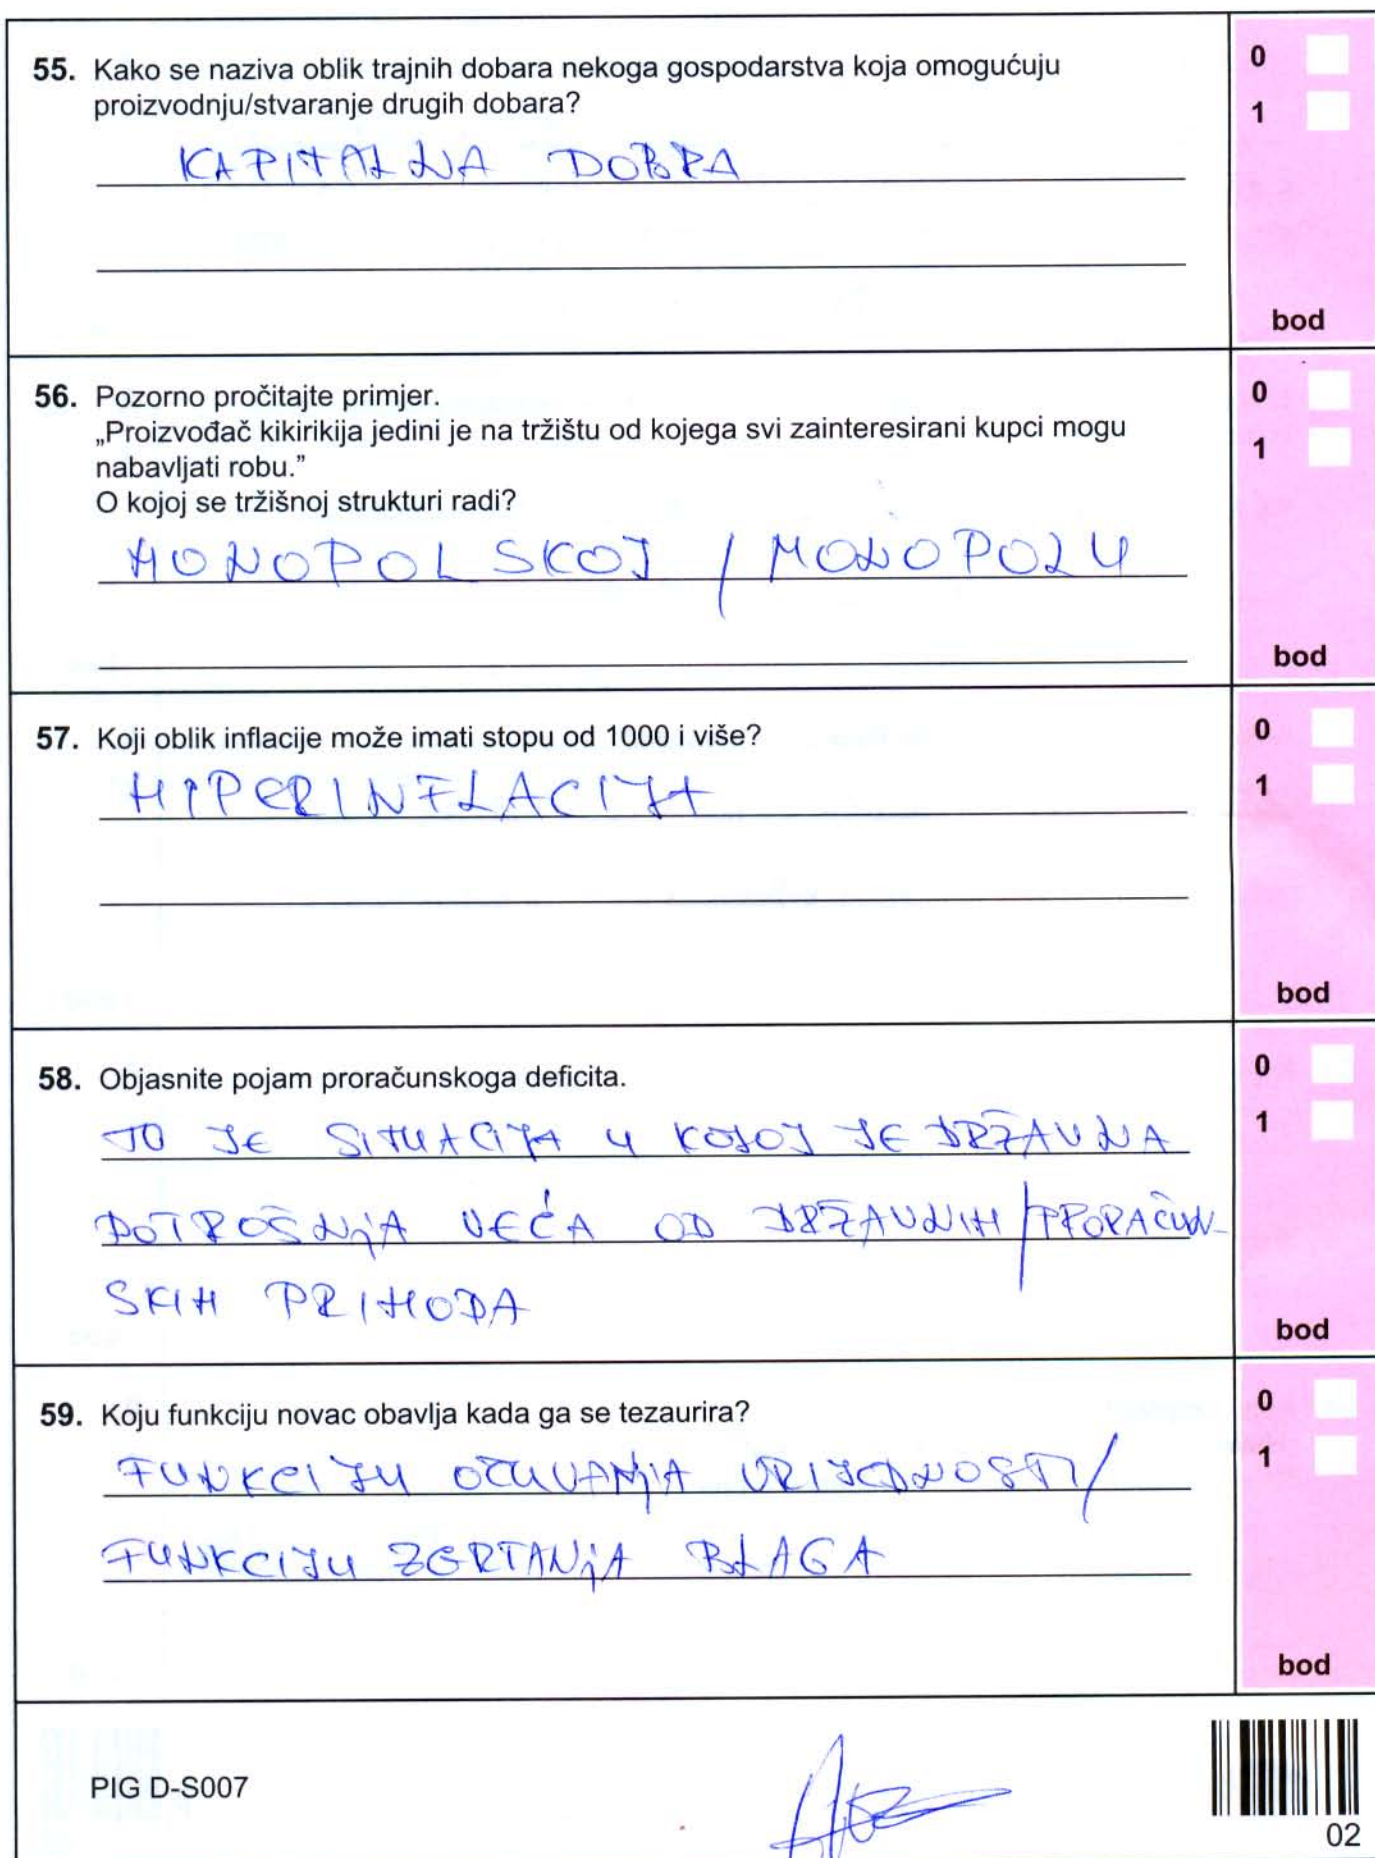 55. Kako se naziva oblik trajnih dobara nekoga gospodarstva koja omogućuju
proizvodnju/stvaranje drugih dobara?
KAPITALNA DOBRA
0
1
bod
56. Pozorno pročitajte primjer.
„Proizvođač kikirikija jedini je na tržištu od kojega svi zainteresirani kupci mogu
nabavljati robu.”
O kojoj se tržišnoj strukturi radi?
MONOPOLSKOJ / MONOPOLU
0
1
bod
57. Koji oblik inflacije može imati stopu od 1000 i više?
HIPERINFLACIJA
0
1
bod
58. Objasnite pojam proračunskoga deficita.
TO JE SITUACIJA U KOJOJ JE DRŽAVNA
POTROŠNjA VEĆA OD DRŽAVNIH / PRORAČUN-
SKIH PRIHODA
0
1
bod
59. Koju funkciju novac obavlja kada ga se tezaurira?
FUNKCIJU OČUVANjA VRIJEDNOSTI /
FUNKCIJU ZGRTANjA BLAGA
0
1
bod
PIG D-S007
02